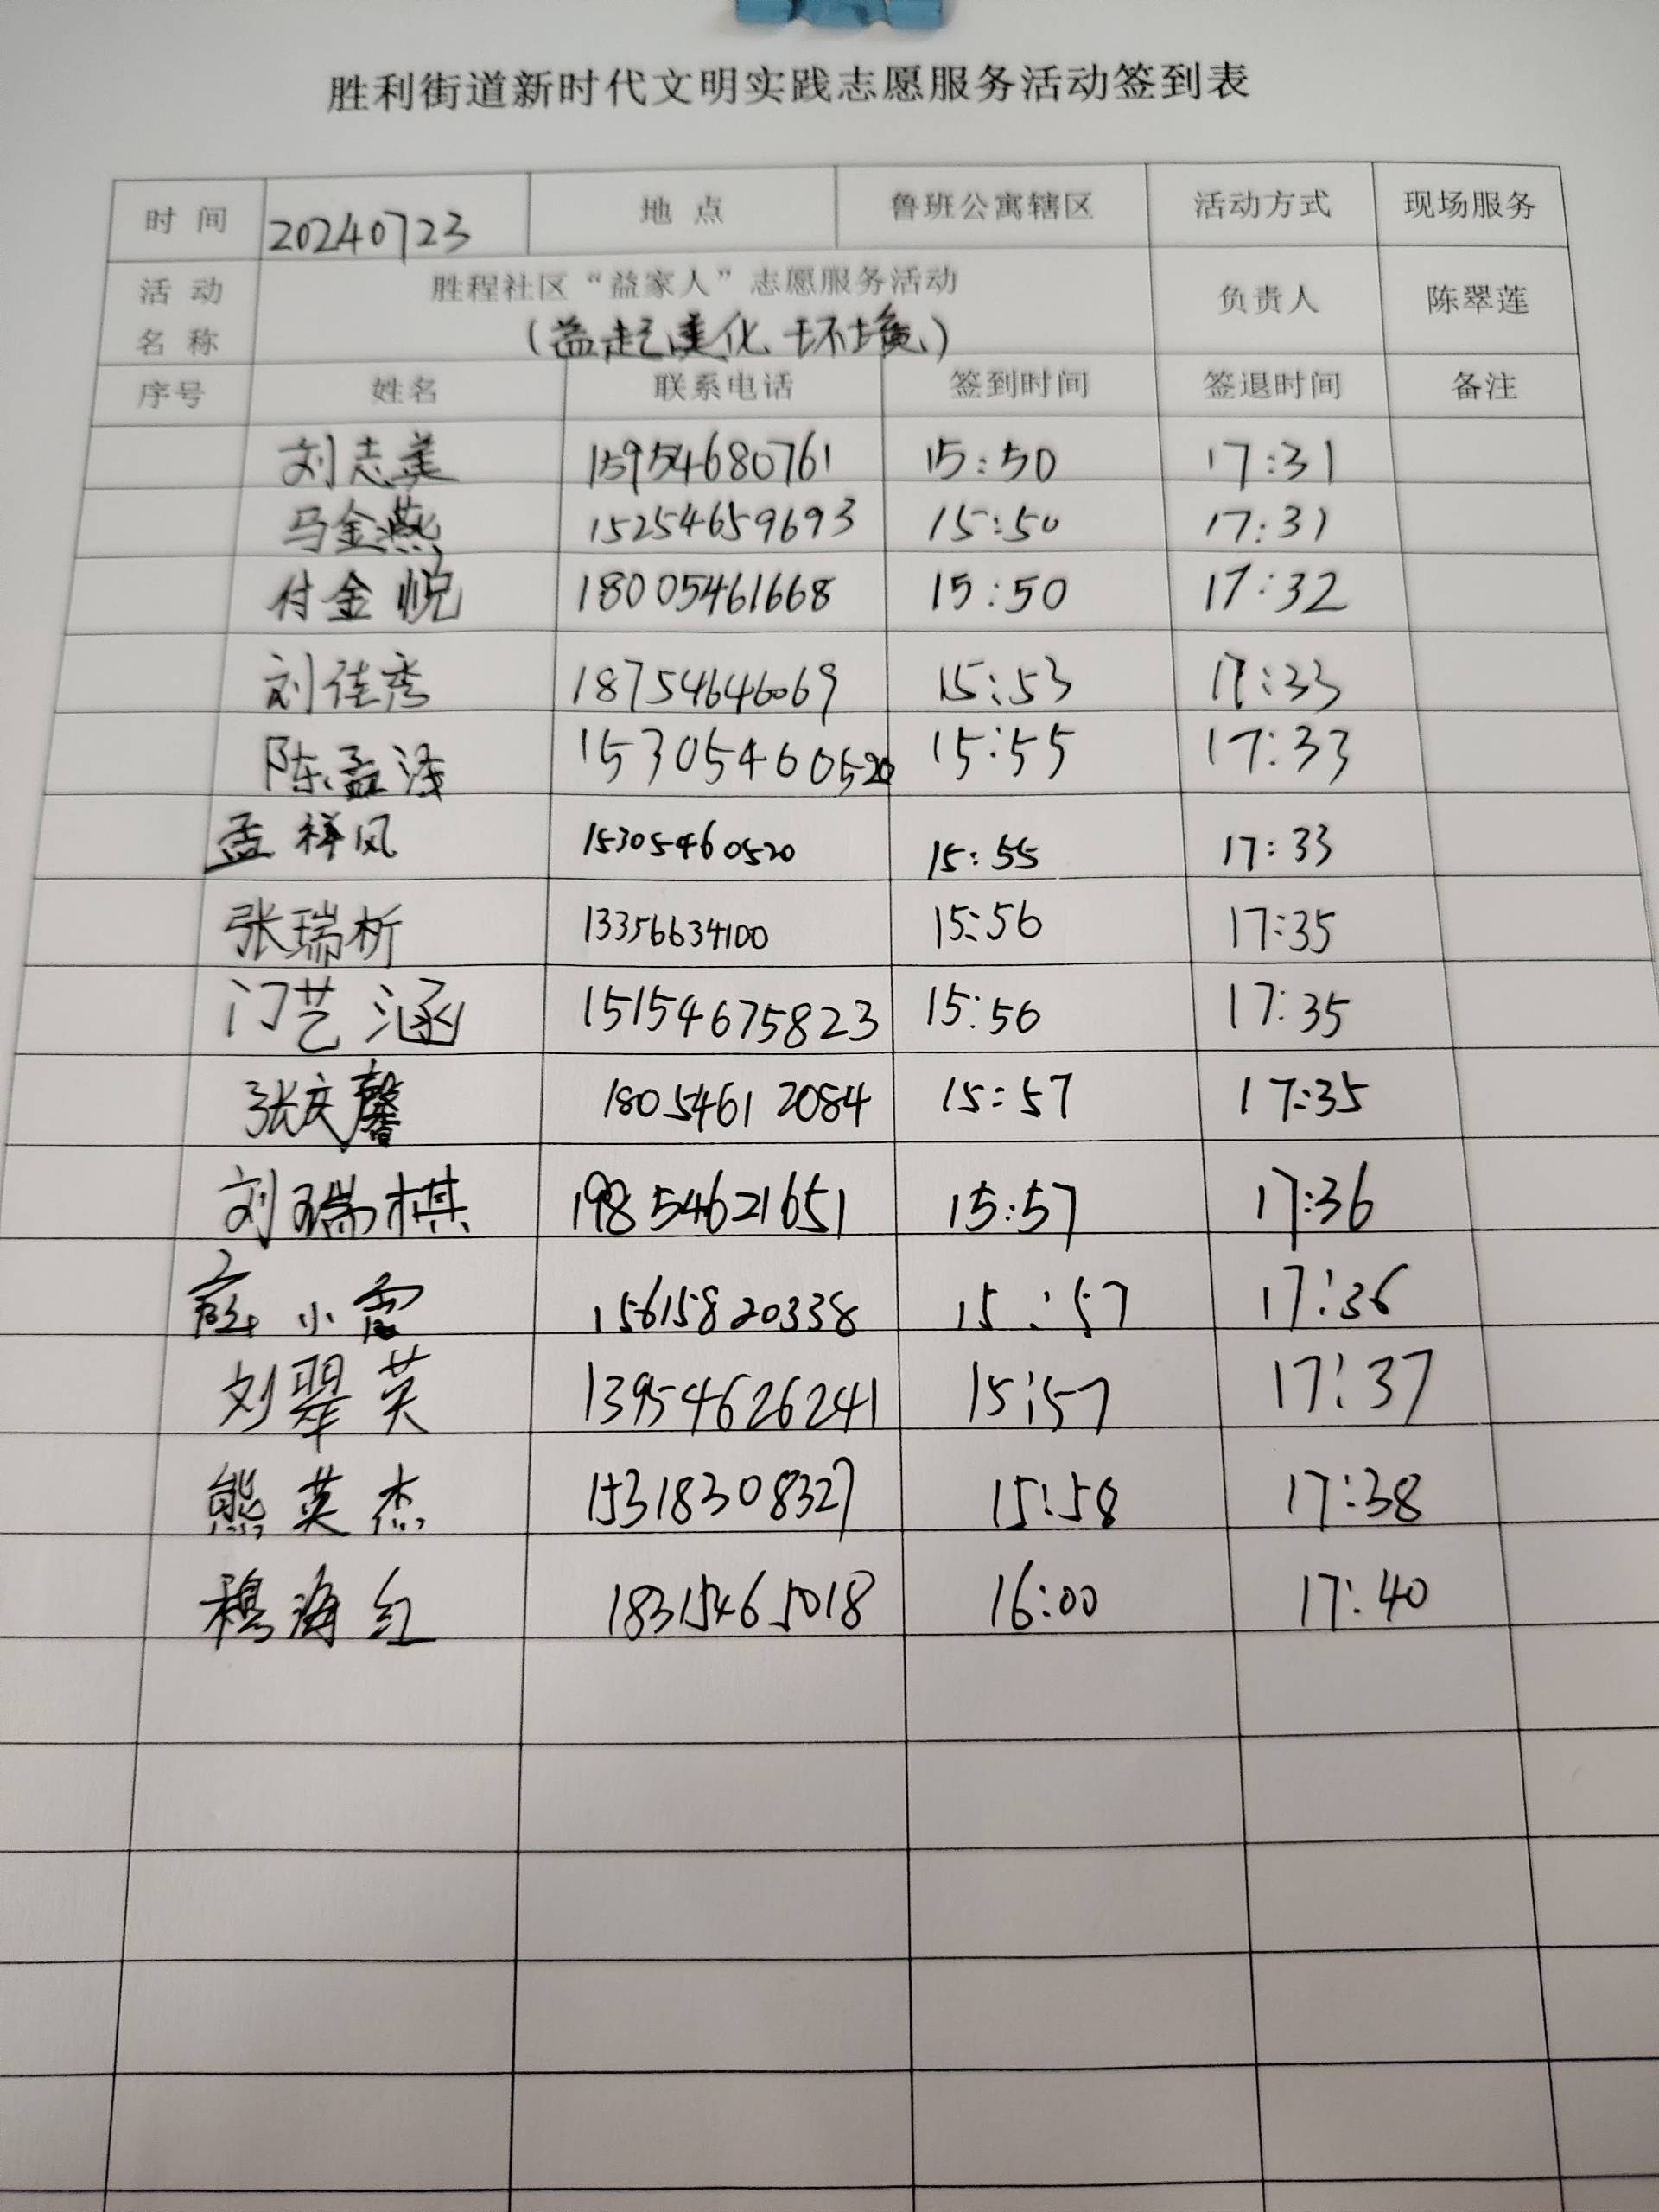 胜利街道新时代文明实践志愿服务活动签到表
时间 20240723 地点 鲁班公寓辖区 活动方式 现场服务
活动名称 胜程社区“益家人”志愿服务活动 负责人 陈翠莲
(益起美化环境)
序号 姓名 联系电话 签到时间 签退时间 备注
刘志美 15954680761 15:50 17:31
马金燕 15254659693 15:50 17:31
付金悦 18005461668 15:50 17:32
刘佳秀 18754646069 15:53 17:33
陈孟 15305460520 15:55 17:33
孟祥风 15305460520 15:55 17:33
张瑞析 13356634100 15:56 17:35
门艺涵 15154675823 15:56 17:35
张文馨 18054612084 15:57 17:35
刘瑞棋 19854621651 15:57 17:36
小 15615820338 15:57 17:36
刘翠英 13954626241 15:57 17:37
熊英杰 15318308327 15:58 17:38
穆海红 18315465018 16:00 17:40